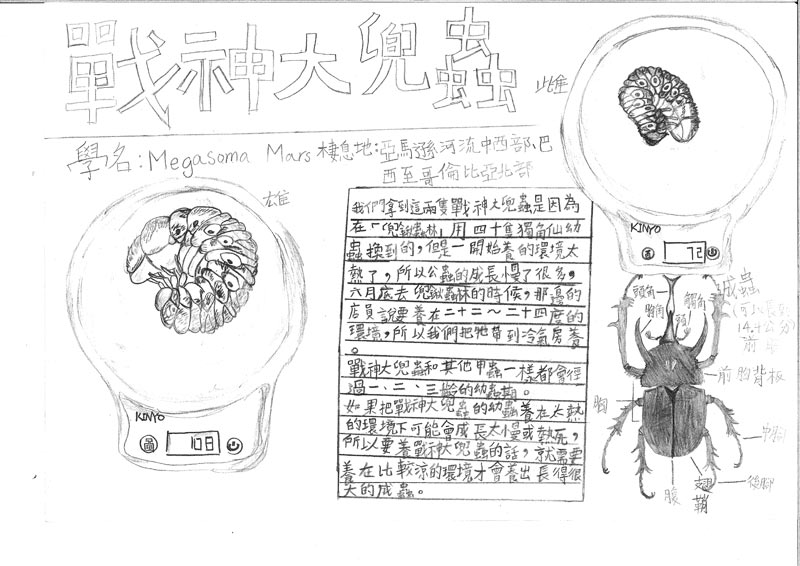 戰神大兜蟲
學名：Megasoma Mars 棲息地：亞馬遜河流中西部、巴
西至哥倫比亞北部
雌
雄
KINYO
72
KINYO
108
我們拿到這兩隻戰神大兜蟲是因為
在「兜鍬蟲林」用四十隻獨角仙幼
蟲換到的，但是一開始養的環境太
熱了，所以公蟲的成長慢了很多，
六月底去兜鍬蟲林的時候，那邊的
店員說要養在二十二～二十四度的
環境，所以我們把牠帶到冷氣房養
。
戰神大兜蟲和其他甲蟲一樣都會經
過一、二、三齡的幼蟲期。
如果把戰神大兜蟲的幼蟲養在太熱
的環境下可能會成長太慢或熱死，
所以要養戰神大兜蟲的話，就需要
養在比較涼的環境才會養出長得很
大的成蟲。
成蟲
頭角
胸角
觸角
頭
前胸背板
胸
中腳
後腳
翅鞘
腹